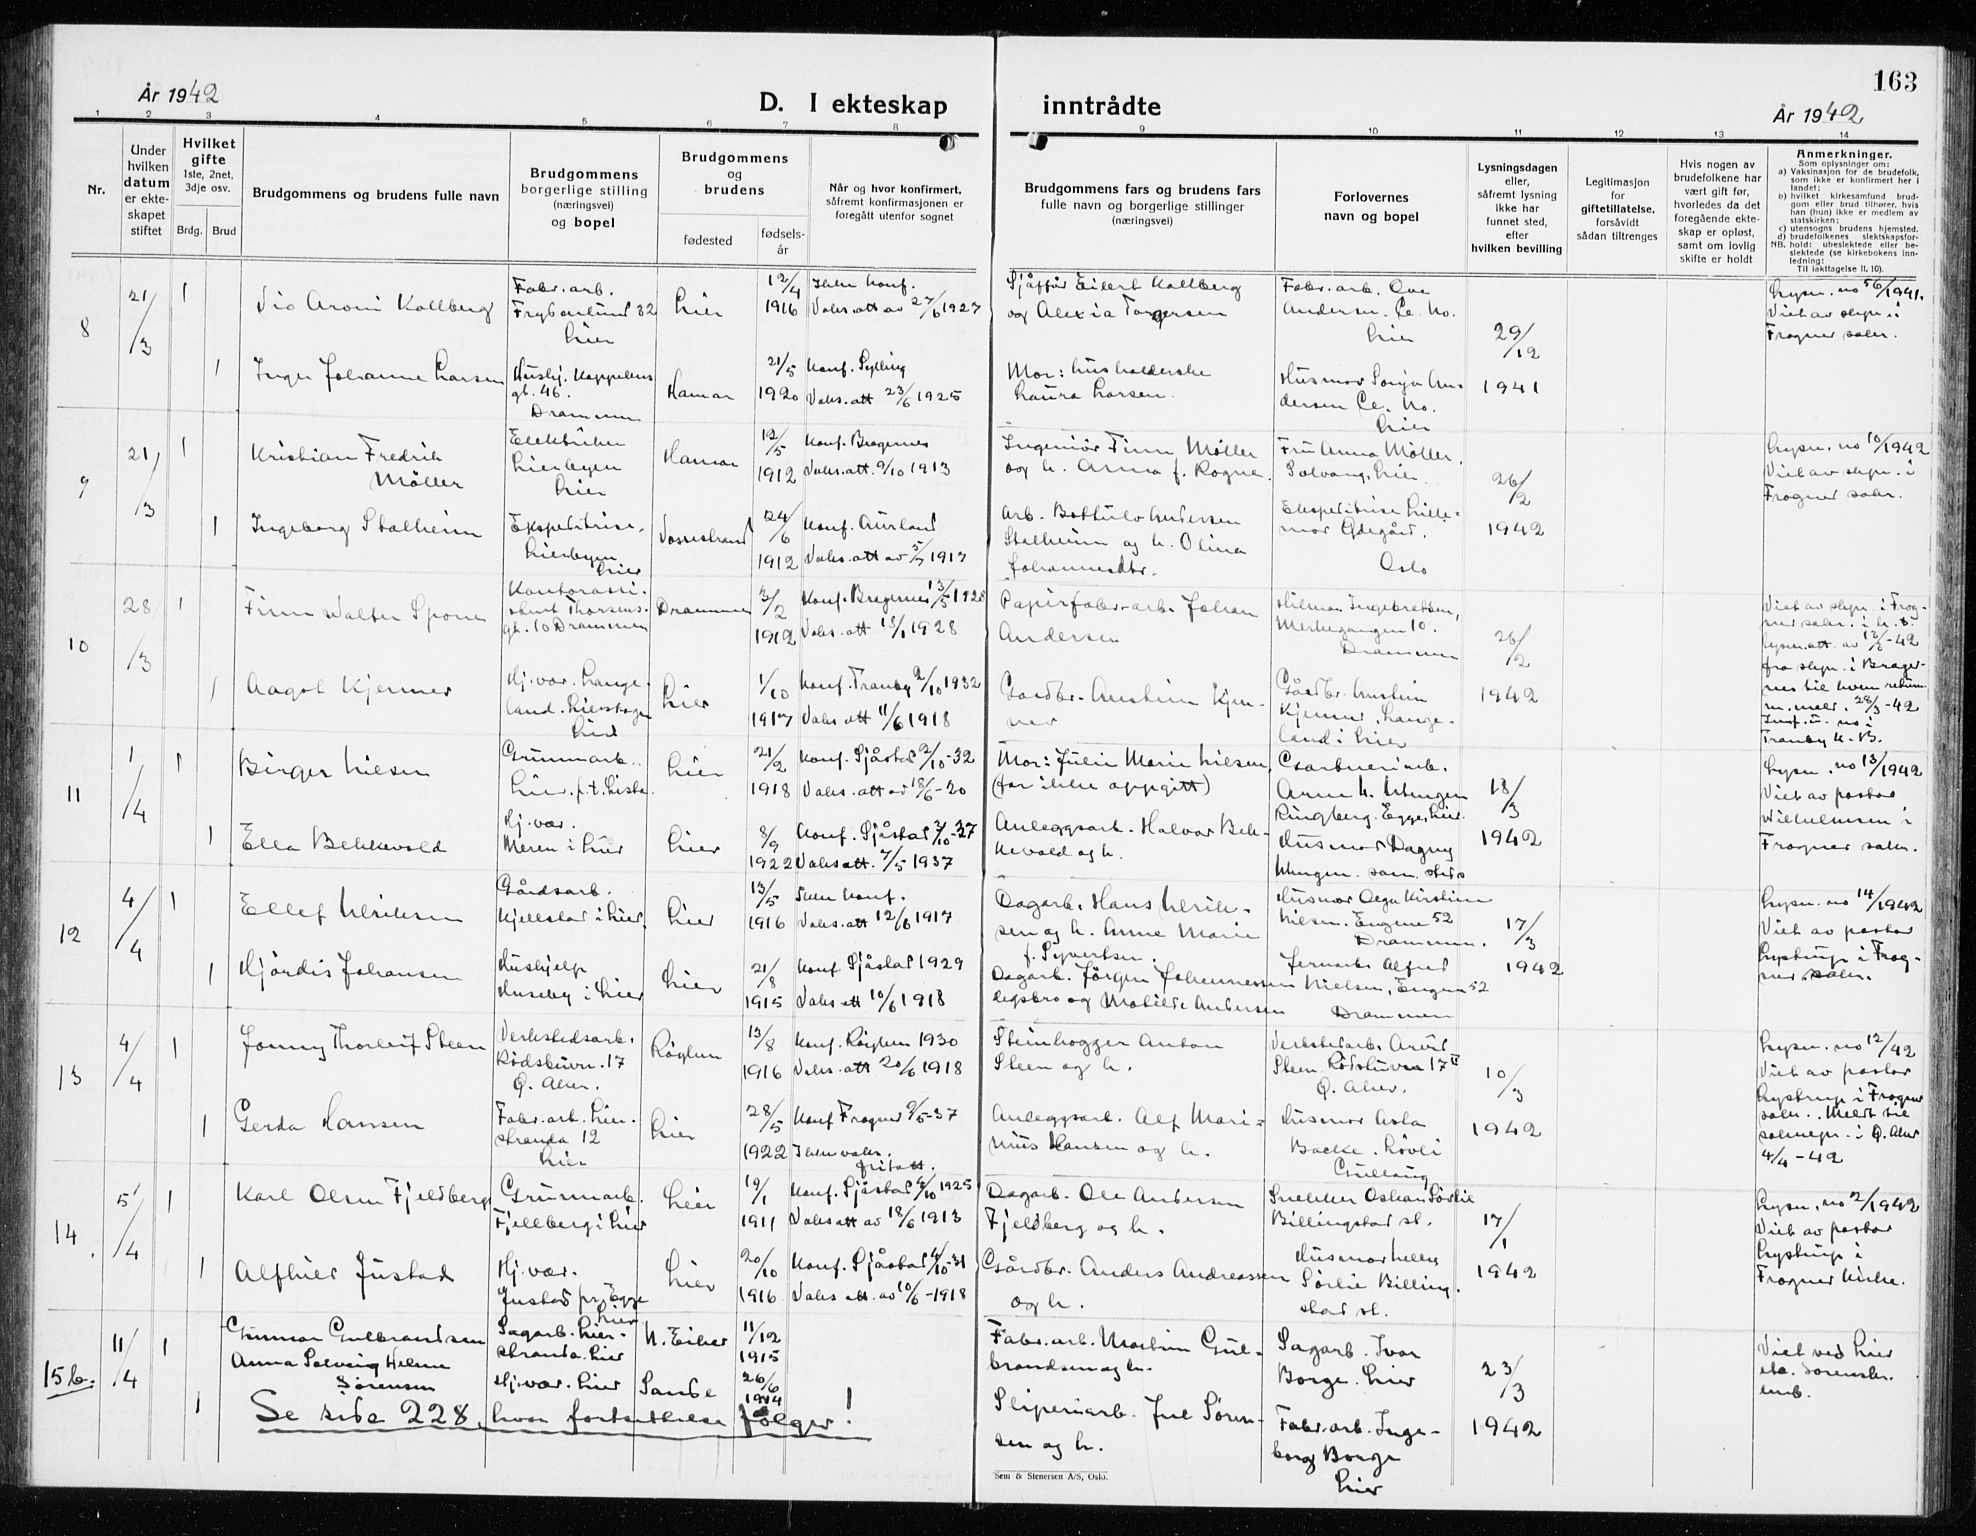 163
År 1942
D. I ekteskap inntrådte
År 1942
1 2 3 4 5 6 7 8 9 10 11 12 13 14
Nr.
Under
hvilken
datum
er ekte-
skapet
stiftet
Hvilket
gifte
1ste, 2net,
3dje osv.
Brdg.
Brud
Brudgommens og brudens fulle navn
Brudgommens
borgerlige stilling
(næringsvei)
og bopel
Brudgommens
og
brudens
fødested
fødsels-
år
Når og hvor konfirmert,
såfremt konfirmasjonen er
foregått utenfor sognet
Brudgommens fars og brudens fars
fulle navn og borgerlige stillinger
(næringsvei)
Forlovernes
navn og bopel
Lysningsdagen
eller,
såfremt lysning
ikke har
funnet sted,
efter
hvilken bevilling
Legitimasjon
for
giftetillatelse,
forsåvidt
sådan tiltrenges
Hvis nogen av
brudefolkene har
vært gift før,
hvorledes da det
foregående ekte-
skap er opløst,
samt om lovlig
skifte er holdt
Anmerkninger.
Som oplysninger om:
a) Vaksinasjon for de brudefolk,
som ikke er konfirmert her i
landet;
b) hvilket kirkesamfund brud-
gom eller brud tilhører, hvis
han (hun) ikke er medlem av
statskirken;
c) utensogns brudens hjemsted.
d) brudefolkenes slektskapsfor-
NB. hold: ubeslektede eller be-
slektede (se kirkebokens inn-
ledning:
Til iakttagelse II. 10).
8
21/3
1
Kallberg
Fabr. arb.
32
Lier
Lier
12/4
1916
Ikke konf.
Vaks. att av 27/6 1927
Sjåffør Eilert Kallberg
og Alexia Torgersen
Fabr. arb. Ove
Andersen. Ce. No.
Lier
29/12
1941
Lysn. no 56/1941.
Viet av slpr. i
Frogner sakr.
1
Inger Johanne Larsen
Hushj. Kappelens
gt. 46.
Drammen
Hamar
21/5
1920
Konf. Sylling
Vaks. att 23/6 1925
Mor: husholderske
Laura Larsen.
Husmor Sonja An-
dersen Ce. No.
Lier
9
21/3
1
Kristian Fredrik
Møller
Elektriker
Lierbyen
Lier
Hamar
12/5
1912
Konf. Bragernes
Vaks. att. 9/10 1913
Ingeniør Finn Møller
og h. Anna f. Rogne.
Fru Anna Møller.
Solvang, Lier.
26/2
1942
Lysn. no 10/1942
Viet av slpr. i
Frogner sakr.
1
Ingeborg Stalheim
Ekspeditrise,
Lierbyen
Lier
Vossestrand
24/6
1912
Konf. Aurland
Vaks. att av 5/7 1917
Arb. Andersen
Stalheim og h. Olina
Johannesdtr.
Ekspeditrise Lille-
mor Ødegård.
Oslo
10
28/3
1
Finn Walter
Kontorassi-
stent
gt. 10 Drammen
Drammen
3/2
1912
Konf. Bragernes 13/5 1928
Vaks. att 18/1 1928
Papirfabr. arb. Johan
Andersen
Hilmar Ingebretsen,
10.
Drammen
26/2
1942
Viet av slpr. i Frog-
ner sakr. i h. t.
lysn. att. av 13/3-42
fra slpr. i Brager-
nes til hvem return.
m. meld. 28/3-42
Innf. u. no i
Tranby K-B.
1
Aagot Kjenner
Hj. vær. Lange-
land. Lierskogen
Lier
Lier
1/10
1917
Konf. Tranby 2/10 1932
Vaks att 11/6 1918
Gårdbr. Anstein Kjen-
ner
Gårdbr. Anstein
Kjenner, Lange-
land i Lier
11
1/4
1
Birger Nilsen
Grunnarb.
Lier. p.t. Lista.
Lier
21/2
1918
Konf. Sjåstad 2/10-32
Vaks. att av 18/6-20
Mor: Julie Marie Nilsen,
(far ikke oppgitt)
Arne N.
Ringberg. Egge, Lier.
18/3
1942
Lysn. no 13/1942
Viet av pastor
Wilhelmsen i
Frogner sakr.
1
Ella Bekkevold
Hj. vær.
Meren i Lier
Lier
8/9
1922
Konf. Sjåstad 3/10-37
Vaks att. 7/5 1937
Anleggsarb. Halvor Bek-
kevold og h.
Husmor Dagny
sam. steds
12
4/4
1
Ellef Ulriksen
Gårdsarb.
Kjellstad i Lier.
Lier
13/5
1916
Ikke konf.
Vaks. att 12/6 1917
Dagarb. Hans Ulrik-
sen og h. Anne Marie
f. Syvertsen.
Husmor Olga Kirstine
Nilsen. Engene 52
Drammen.
17/3
1942
Lysn. no 14/1942
Viet av pastor
Lystrup i Frog-
ner sakr.
1
Hjördis Johansen
Hushjelp
Huseby i Lier
Lier
21/8
1915
Konf. Sjåstad 1929
Vaks att 10/6 1918
Dagarb. Jörgen Johannessen
og Matilde Andersen
Jernarb. Alfred
Nielsen, Engene 52
Drammen
13
4/4
1
Jonny Thorleif Steen
Verkstedsarb.
Rödstuvn. 17
Ö. Aker.
Röyken
13/8
1916
Konf. Röyken 1930
Vaks. att 20/6 1918
Steinhogger Anton
Steen og h.
Verkstedarb. Arvid
Steen. 17 II
Ö. Aker.
10/3
1942
Lysn. no 12/42
Viet av pastor
Lystrup i Frogner
sakr. Meldt til
soknepr. i Ö. Aker
4/4-42
1
Gerda Hansen
Fabr. arb. Lier-
stranda 12
Lier
Lier
28/5
1922
Konf Frogner 9/5-37
Ikke vaks.
fritatt.
Anleggsarb. Alf Mari-
nius Hansen og h.
Husmor Asta
Backe.
Gullaug
14
5/4
1
Karl Olsen Fjeldberg
Grunnarb.
Fjellberg i Lier
Lier
19/1
1911
Konf. Sjåstad 4/10 1925
Vaks att av 18/6 1913
Dagarb. Ole Andersen
Fjeldberg og h.
Snekker Oskar Sørlie
Billingstad st.
17/1
1942
Lysn. no 2/1942
Viet av pastor
Lystrup i
Frogner kirke.
1
Alfhild Justad
Hj. vær.
Justad pr. Egge
Lier
Lier
20/10
1916
Konf. Sjåstad 4/10-31
Vaks att. av 10/6-1918
Gårdbr. Anders Andreassen
og h.
Husmor Nelly
Sørlie Billing-
stad st.
15b.
11/4
1
Gunnar Gulbrandsen
Sagarb. Lier-
stranda. Lier
N. Eiker
11/12
1915
Fabr. arb. Martin Gul-
brandsen og h.
Sagarb. Ivar
Borge. Lier
23/3
1942
Viet ved Lier
Sorenskr.
emb.
1
Anna Solveig Helene
Sørensen
Hj. vær. Lier
Sande
26/6
1914
Sliperiarb. Jul Søren-
sen og h.
Fabr. arb. Inge-
borg Borge
Lier
Se side 228, hvor fortsettelse følger!
Sem & Stenersen A/S, Oslo.